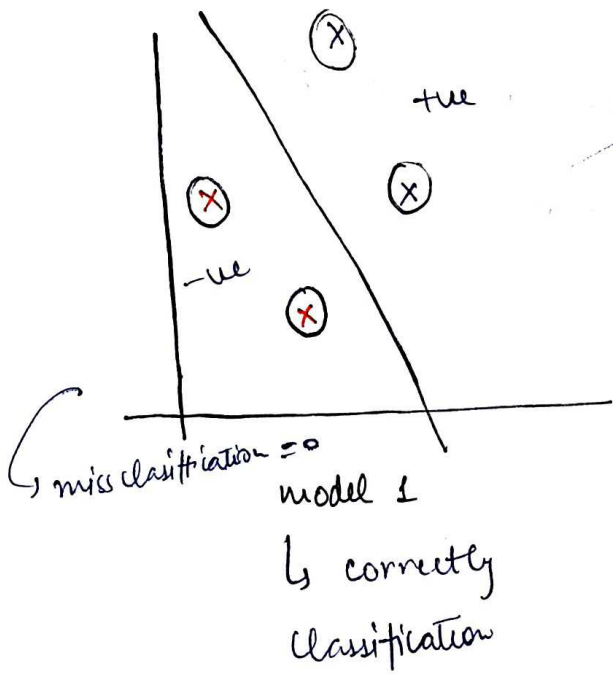 x
+ve
x
x
-ve
x
miss classification = 0
model 1
↳ correctly
classification